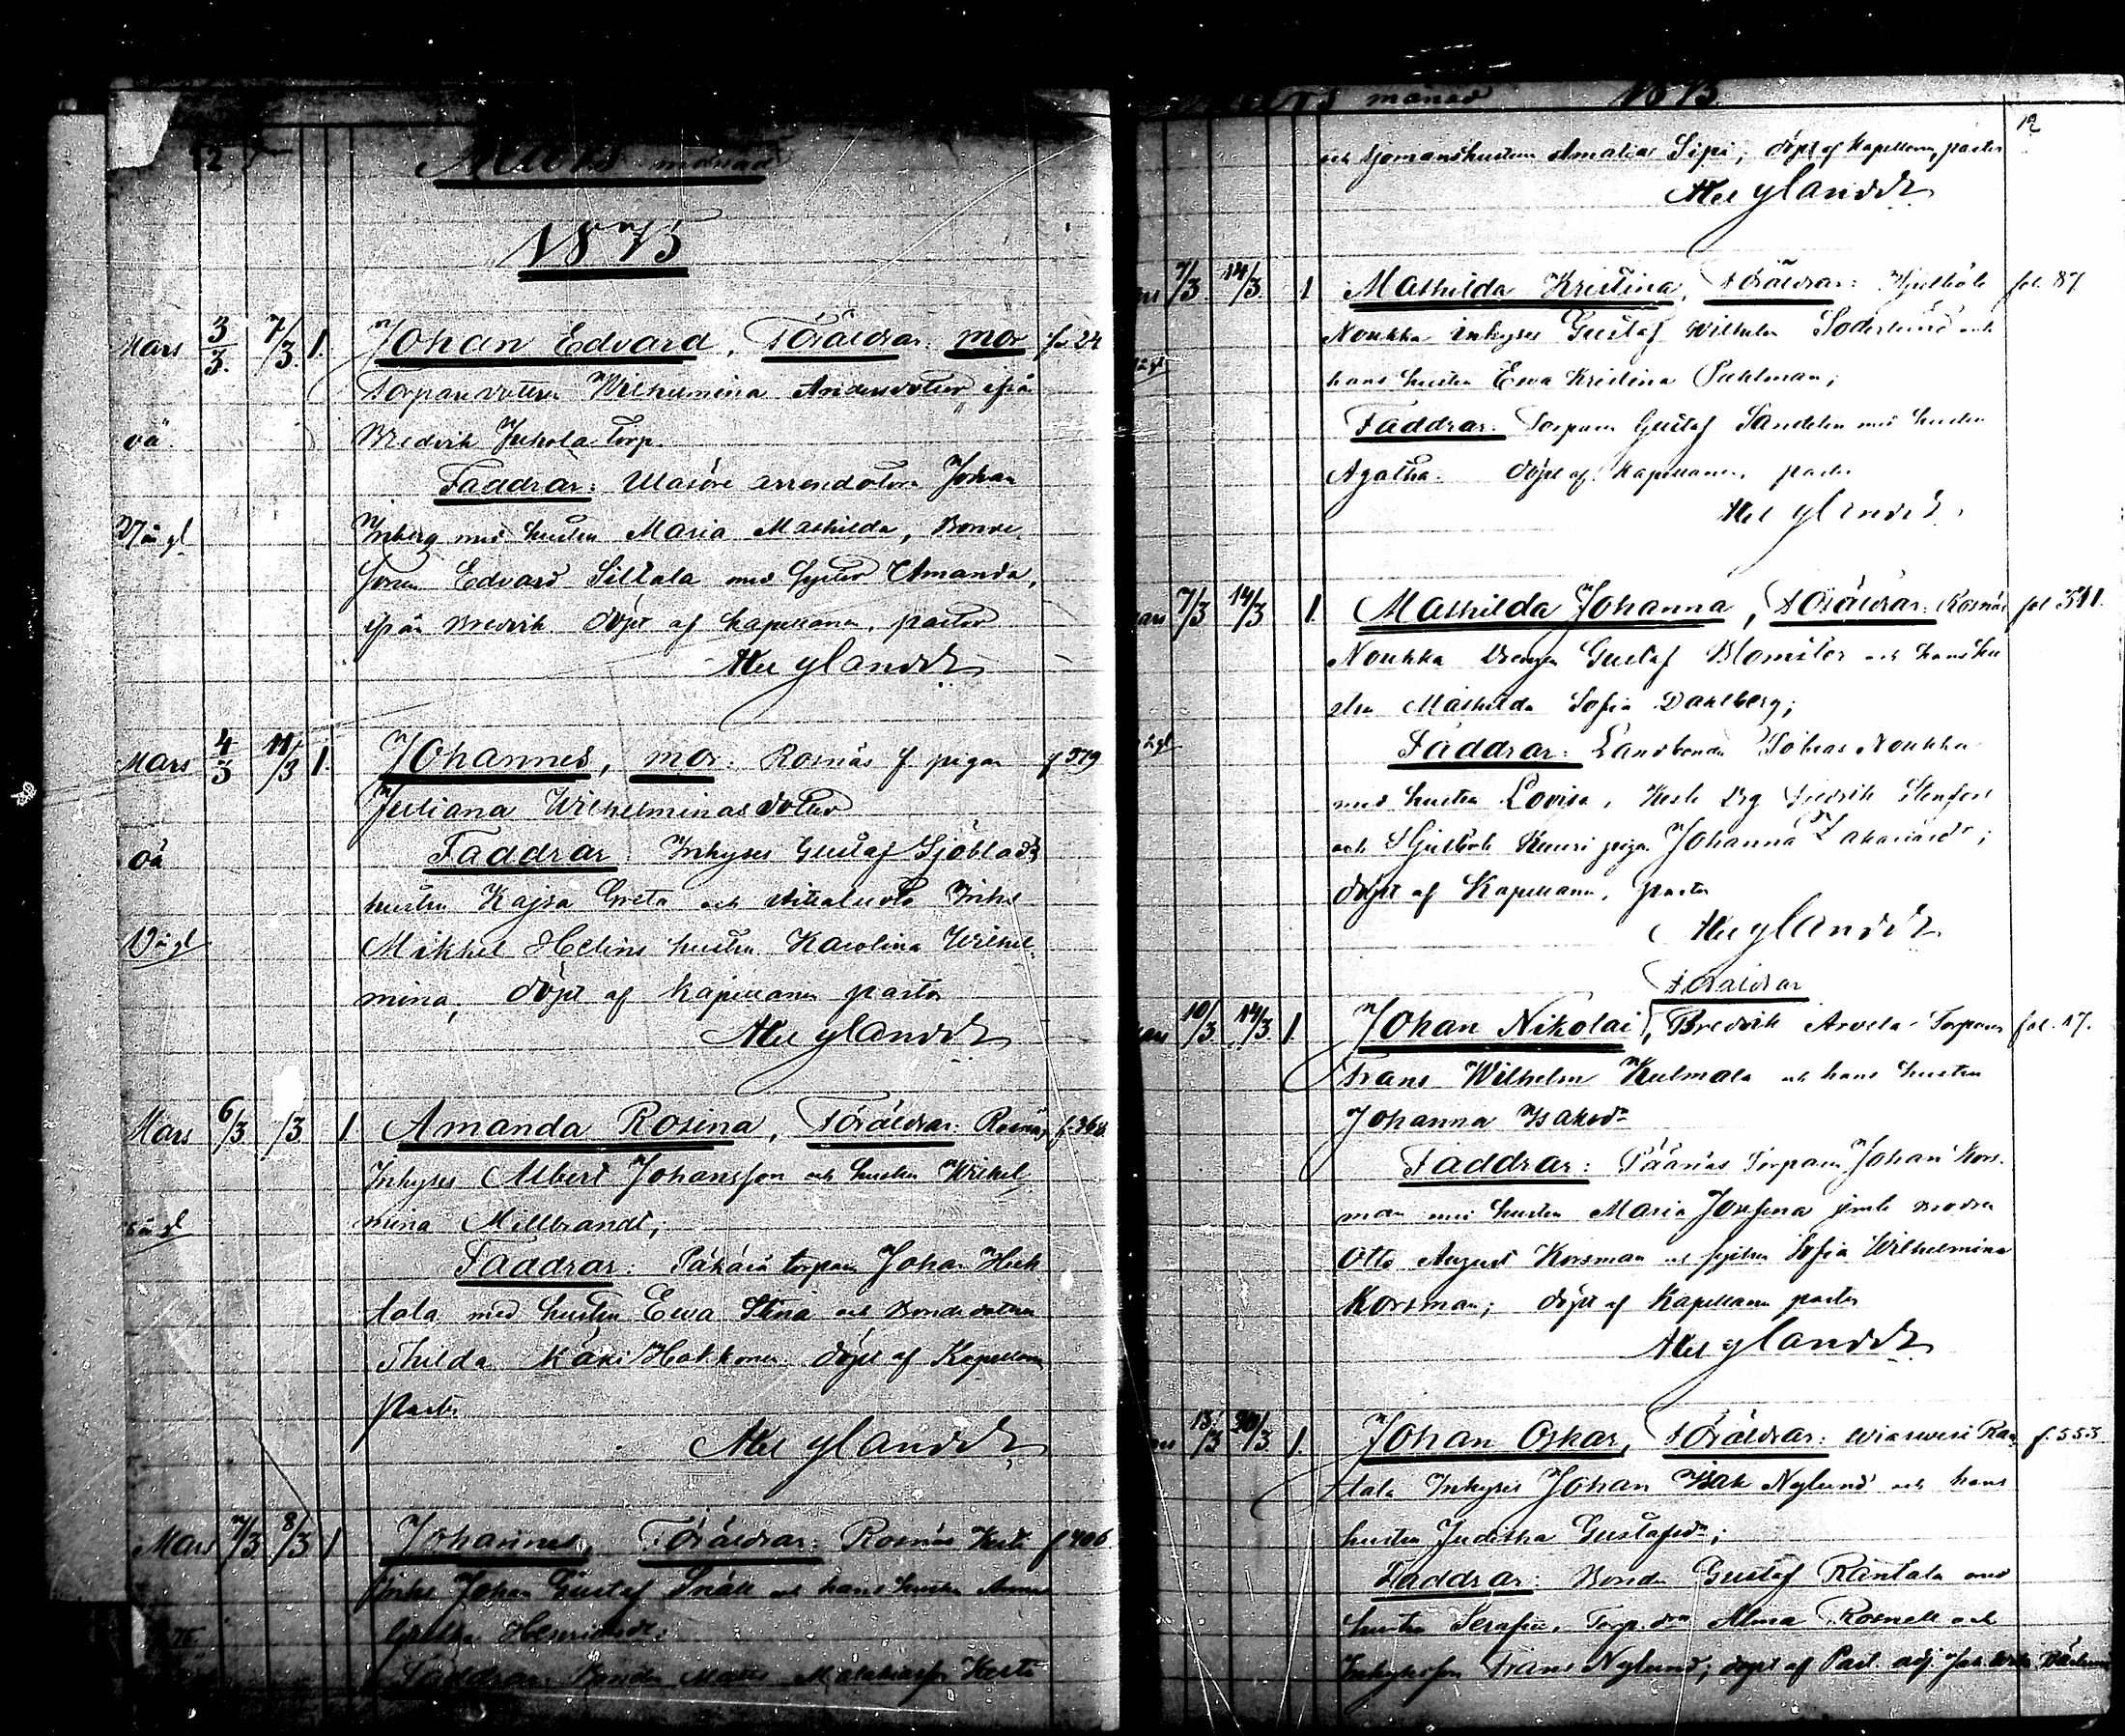 12
Mars månad
1875
Mars 3/3. 7/3. 1. Johan Edvard, Föräldrar: mor fr 24
Torparedottren Wilhelmina Andersdotter ifrån
oä. Bredvik Juhola torp.
Faddrar: Ulasöre arrendatorn Johan
27 år gl Inberg med hustru Maria Mathilda, Bonde
sonen Edvard Siltala med syster Amanda,
ifrån Bredvik. döpt af kapellanen, pastor
Ylander
Mars 4/3 11/3 1. Johannes, mor: Rosnäs f. pigan f 379
Juliana Wilhelminasdotter
oä Faddrar: Inhyses Gustaf Sjöblads
hustru Kajsa Greta och Inhs
19 år gl Mikkel Helins hustru Karolina Wilhel
mina, döpt af kapellanen pastor
Ylander
Mars 6/3 /3 1 Amanda Rosina, Föräldrar: Rosnäs f. 368
Inhyses Albert Johansson och hustru Wilhel
mina Millbrandt;
Faddrar: torpare Johan Heik
kala med hustru Ewa Stina och Bonde dottren
Thilda Mäki Hakkonen döpt af Kapellanen
pastor
Ylander
Mars 7/3 8/3 1 Johannes, Föräldrar: Rosnäs Kesti f 406
Inhs Johan Gustaf Snäll och hans hustru Anna
Greta Henriksdr:
Faddrar: Bonden Matts Malakiasson Kesti
Mars månad 1875
12
och sjömanshustrun Amalia Sipi; döpt af kapellanen, pastor
Ylander
7/3 14/3 1 Mathilda Kristina, Föräldrar: Hjulböle fol. 87
Noukka inhyses Gustaf Wilhelm Söderlund och
hans hustru Ewa Kristina Pahlman;
Faddrar: Torparen Gustaf Sandelin med hustru
Agatha. döpt af Kapellanen, pastor
Ylander
7/3 14/3 1. Mathilda Johanna, Föräldrar: Rosnäs fol 391.
Noukka drengen Gustaf Blomster och hans hu
stru Mathilda Sofia Dahlberg;
Faddrar: Landbonden Tobias Noukka
med hustru Lovisa, Kesti Drg Fredrik Stenfors
och Hjulböle Knuri piga Johanna Zakariasdr;
döpt af Kapellanen, pastor
Ylander
Föräldrar
10/3 14/3 1. Johan Nikolai, Bredvik Arvela Torparen fol. 17.
Frans Wilhelm Kulmala och hans hustru
Johanna Isaksdr
Faddrar: Päärnäs Torparen Johan Kors-
man med hustru Maria Josefina jemte brodren
Otto August Korsman och systren Sofia Wilhelmina
Korsman; döpt af Kapellanen pastor
Ylander
13/3 20/3. 1. Johan Oskar, Föräldrar: Wiasvesi Ran f. 555
tala Inhyses Johan Isak Nylund och hans
hustru Juditha Gustafsdr;
Faddrar: Bonden Gustaf Rantala med
hustru Serafia, Torp.drn Alma Rosnell och
Inhysesson Frans Nylund; döpt af Past. adj.